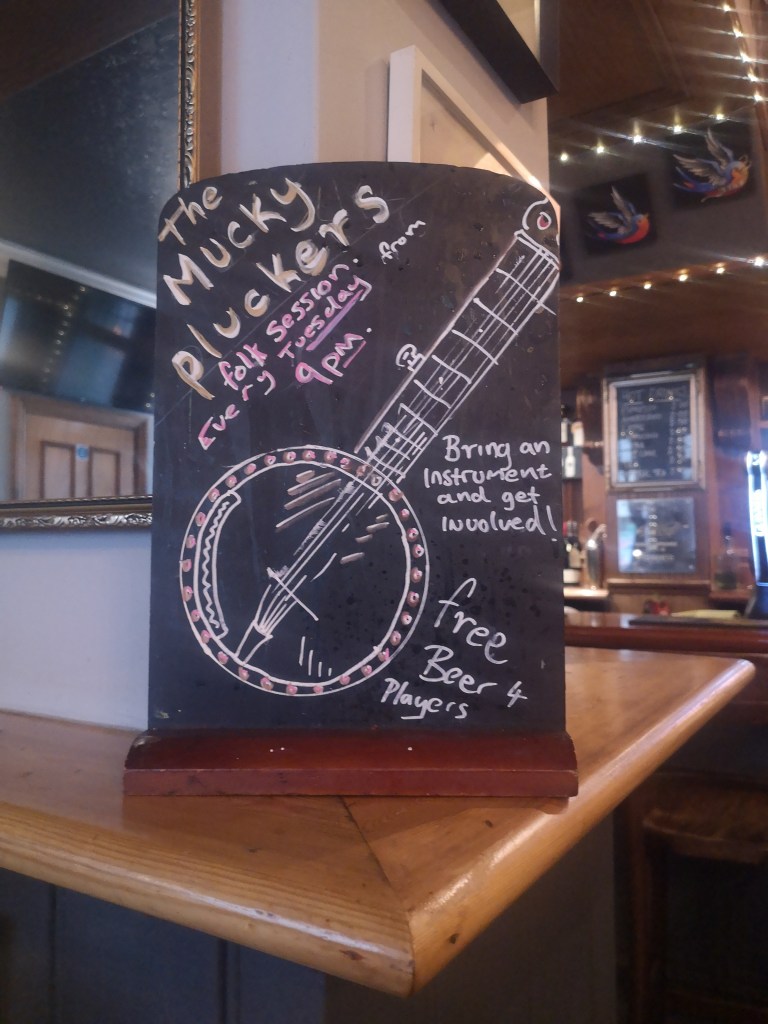 the
Mucky
Pluckers
folk Session.
Every Tuesday from
9pm.
Bring an
Instrument
and get
involved!
free
Beer 4
Players